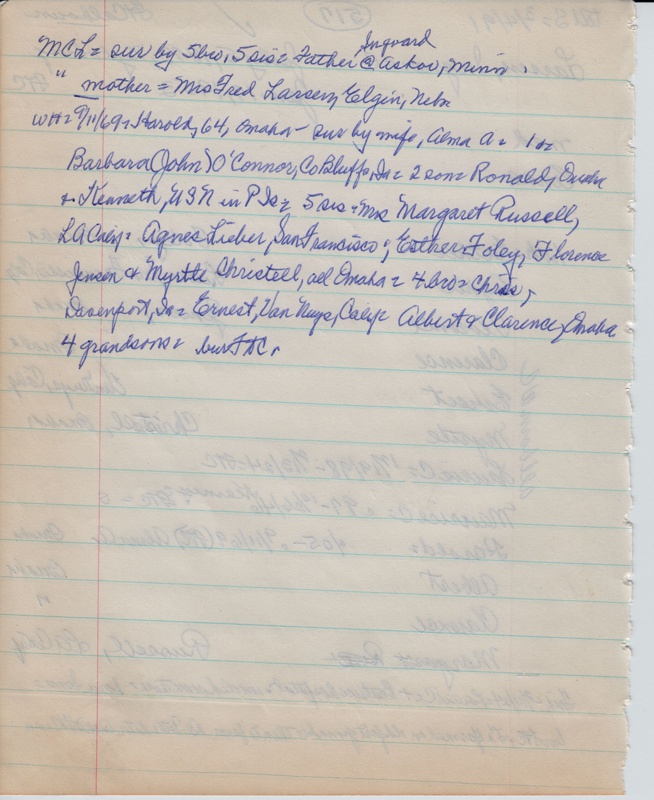 Ingvard
MCL = sur by 5 bro, 5 sis = Father @ Askov, Minn.
" mother = Mrs Fred Larsen, Elgin, Nebr
WH = 9/11/69 = Harold, 64, Omaha - sur by wife, Alma A = 1 da
Barbara (John) O'Connor, Co Bluffs, Ia = 2 son = Ronald, Omaha
& Kenneth, USN in P Is = 5 sis = Mrs Margaret Russell,
LA Calif = Agnes Lieber, San Francisco; Esther Foley, Florence
Jensen & Myrtle Christeel, all Omaha = 4 bro = Chris,
Davenport, Ia = Ernest, Van Nuys, Calif = Albert & Clarence, Omaha
4 grandsons = bur